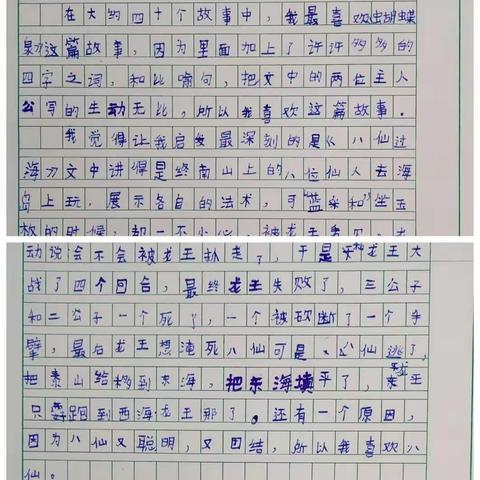 在大约四十个故事中，我最喜欢虫蝴蝶
泉》这篇故事，因为里面加上了许许多多的
四字之词，和比喻句，把文中的两位主人
公写的生动无比，所以我喜欢这篇故事。
我觉得让我启发最深刻的是《八仙过
海》文中讲得是终南山上的八位仙人去海
岛上玩，展示各自的法术，可"蓝采和"坐玉
的时候，却一不小心，被龙王
动说会不会被龙王抓走了，于是龙王大
战了四个回合，最终龙王失败了，三公子
和二公子一个死了，一个被砍断了一个手
臂，最后龙王想淹死八仙可是，八仙逃了，
把泰山给移到东海，把东海填平了，东龙王
只要跑到西海龙王那了。还有一个原因，
因为八仙又聪明，又团结，所以我喜欢八
仙。